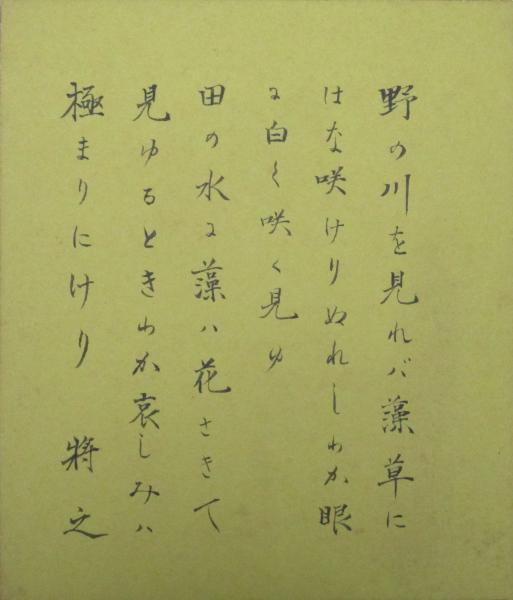 野の川を見れバ藻草に
はな咲けりぬれしわか眼
に白く咲く見ゆ
田の水に藻ハ花さきて
見ゆるときわか哀しみハ
極まりにけり 将之